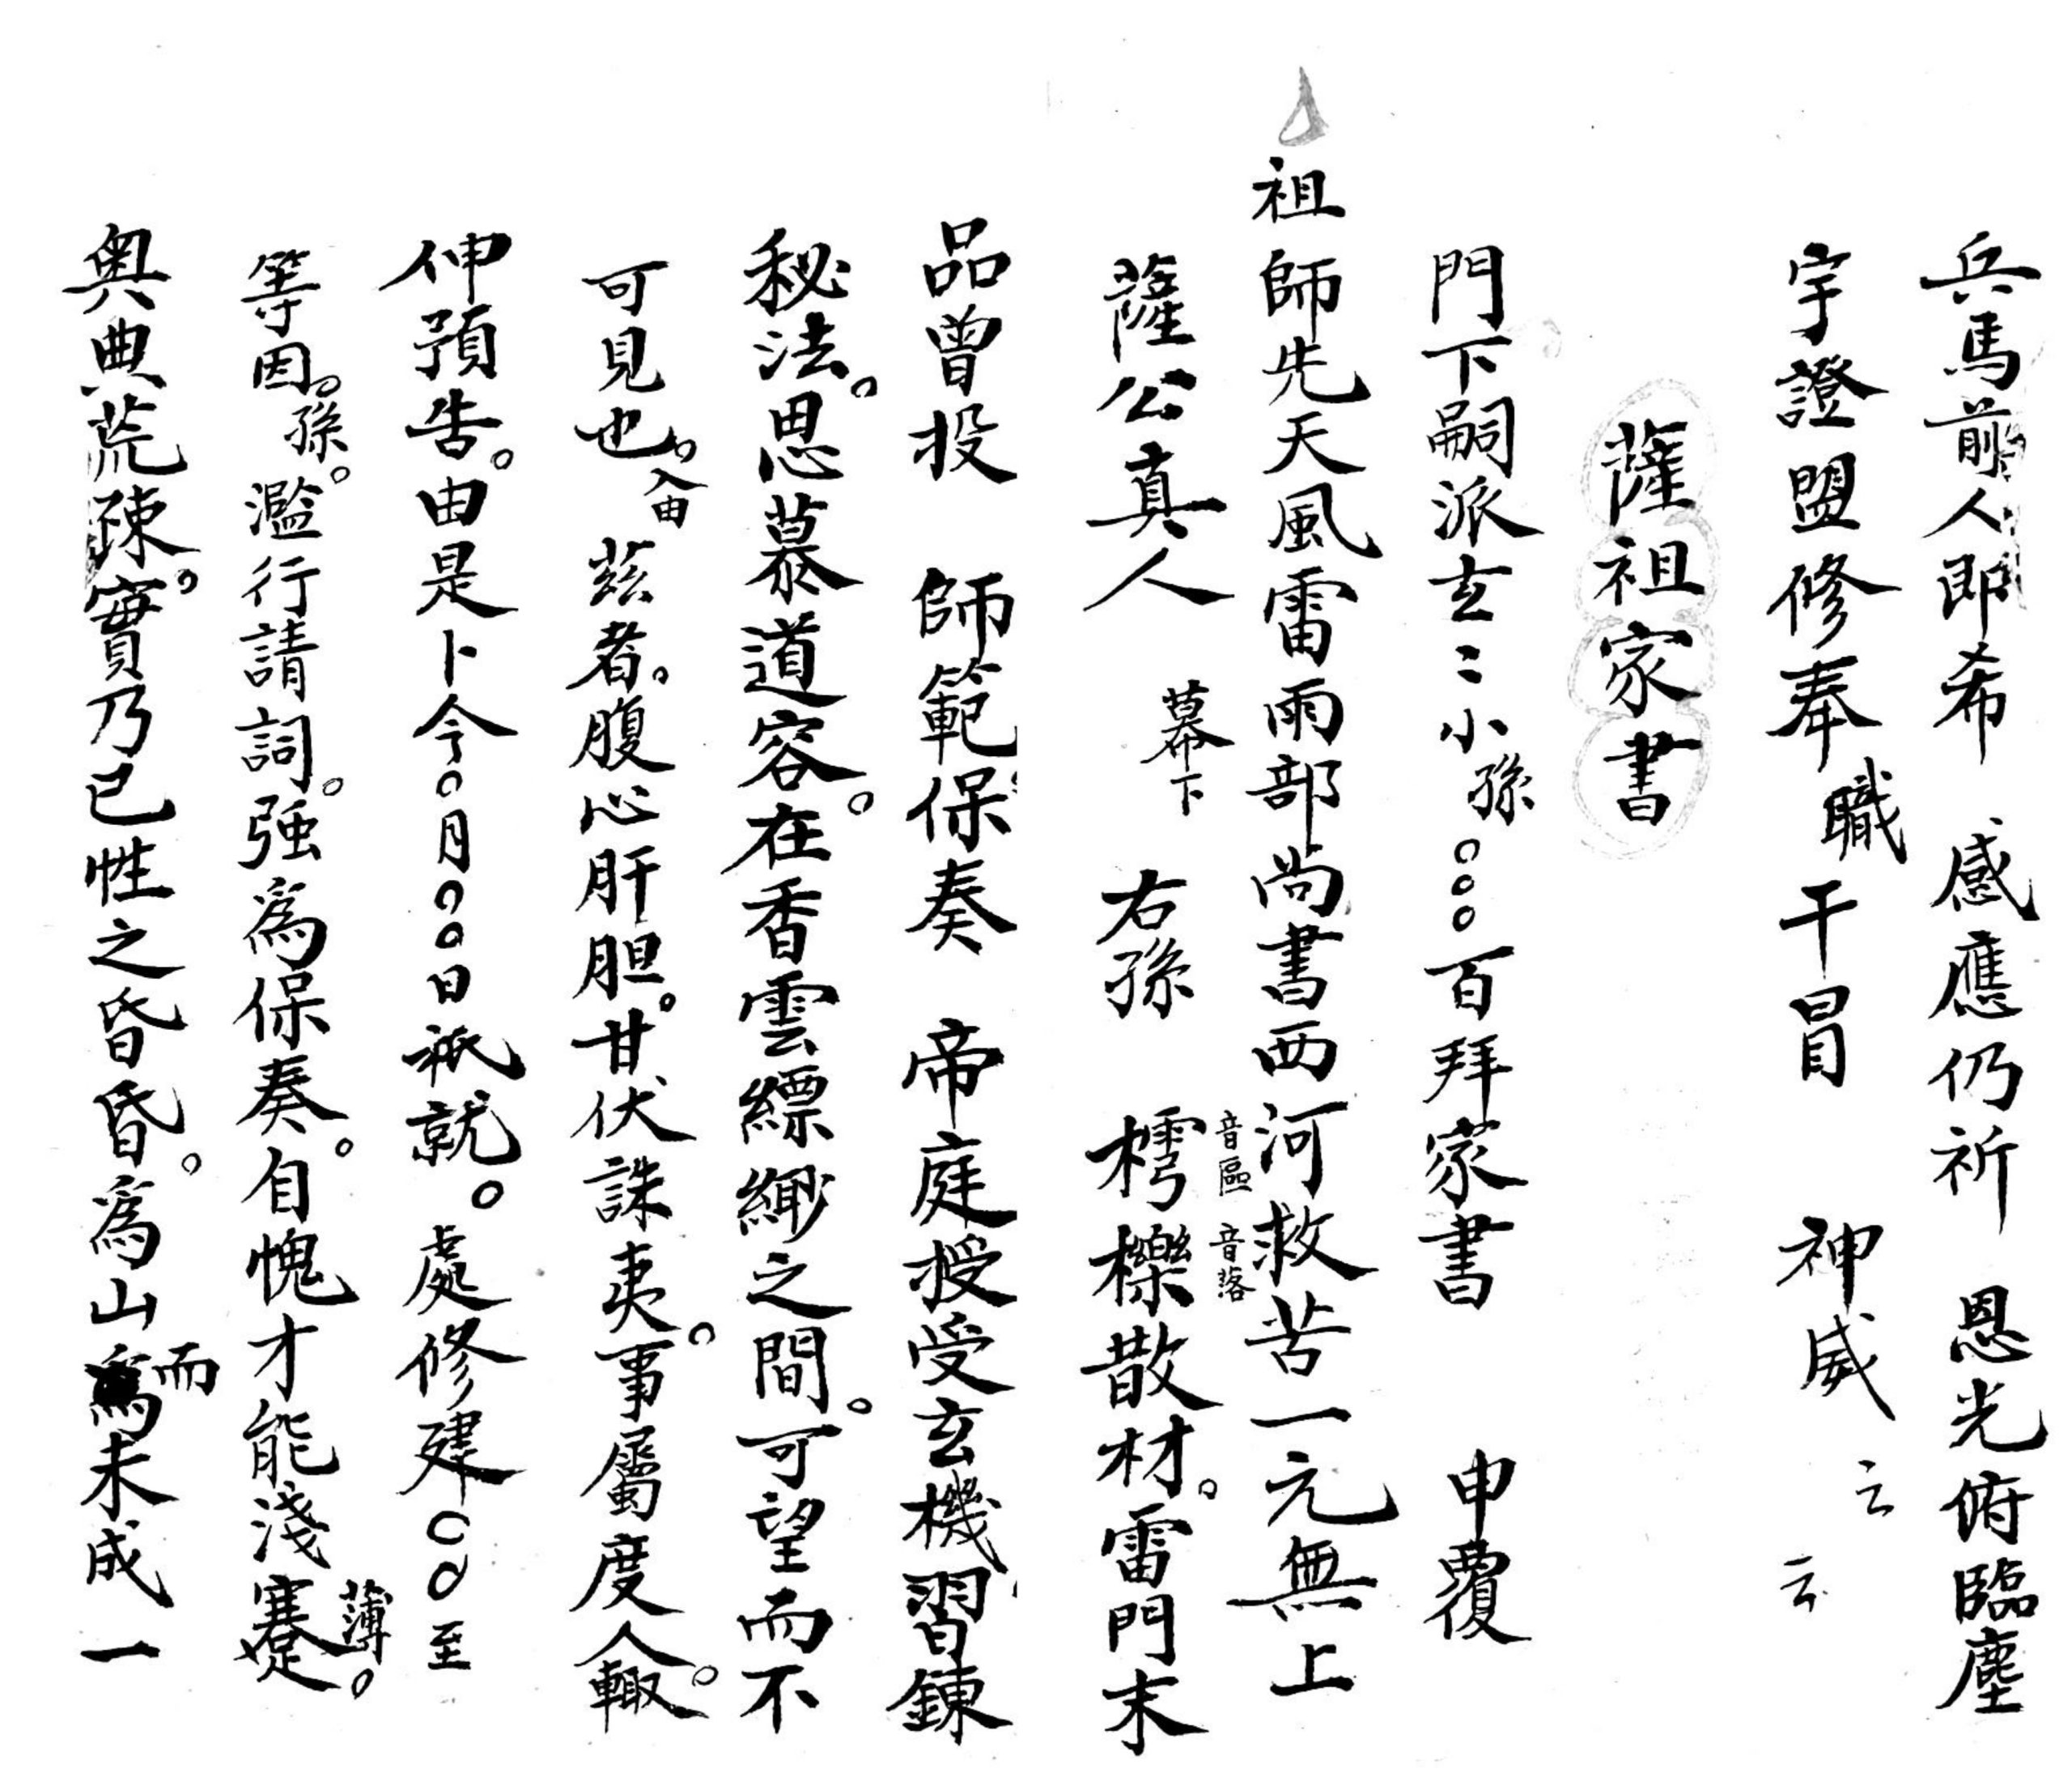 兵馬前人即希　感應仍祈　恩光俯臨塵
宇證盟修奉職干冒　神威云云
薩祖家書
門下嗣派玄〻小孫〇〇〇百拜家書　申覆
祖師先天風雷雨部尚書西河救苦一元無上
薩公真人　幕下　右孫　樗音區櫟音落散材。雷門末
品曾投　師範保奏　帝庭授受玄機習鍊
秘法。思慕道容。在香雲縹緲之間。可望而不
可見也。入由　茲者。腹心肝胆。甘伏誅夷。事屬度人。輙
伸預告。由是卜今〇月〇〇日祇就。處修建〇〇至
等因。孫。濫行請詞。強為保奏。自愧才能淺薄。
奥典荒疎。實乃已性之昏昏。為山而未成一